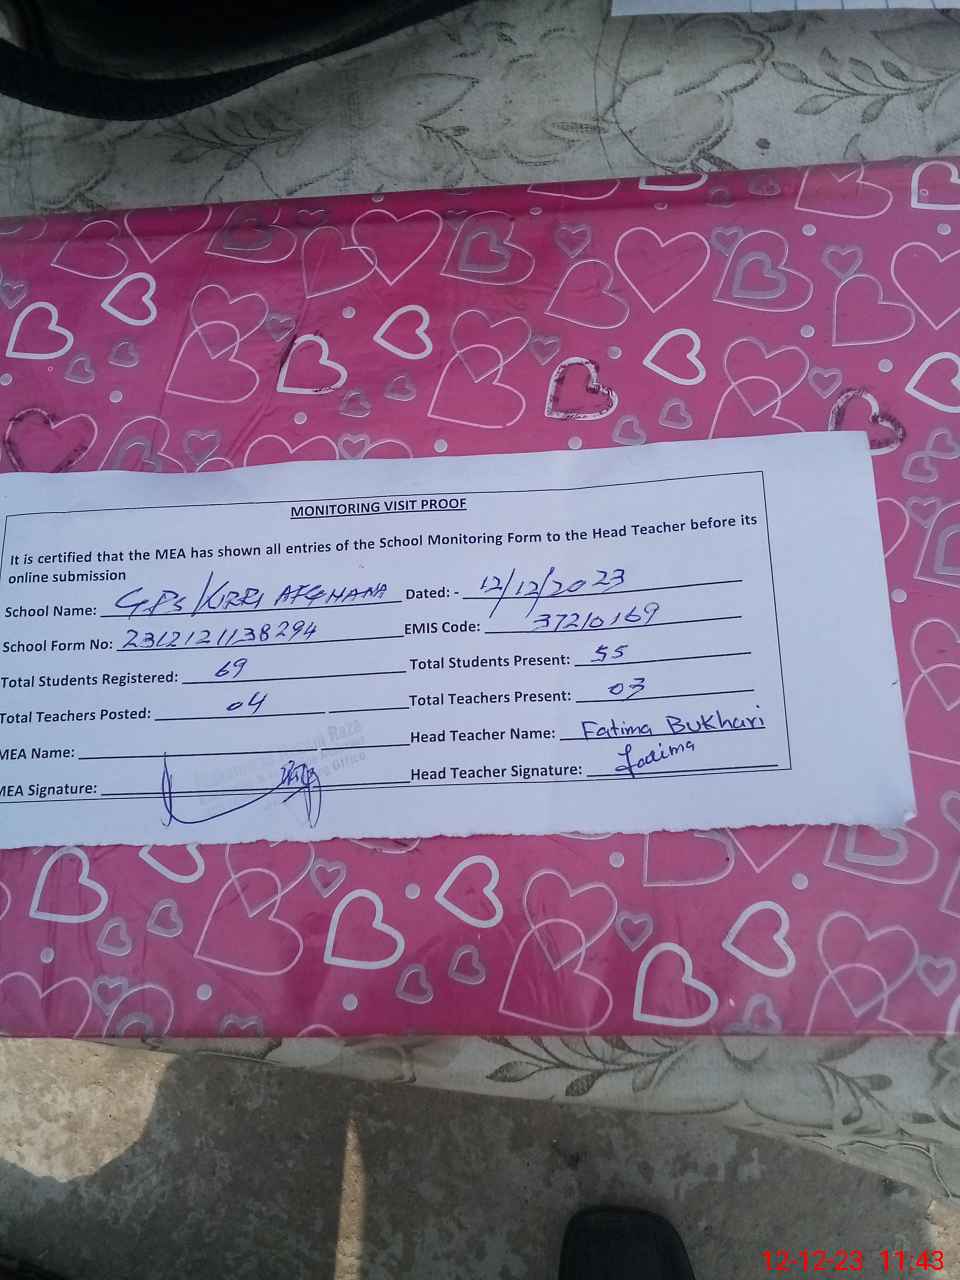 MONITORING VISIT PROOF
It is certified that the MEA has shown all entries of the School Monitoring Form to the Head Teacher before its
online submission
School Name: GPS/KIRRI AFGHANA Dated: - 12/12/2023
School Form No: 2312121138294 EMIS Code: 37210169
Total Students Registered: 69 Total Students Present: 55
Total Teachers Posted: 04 Total Teachers Present: 03
MEA Name: Raza Head Teacher Name: Fatima Bukhari
MEA Signature: Office Head Teacher Signature: Fatima
12-12-23 11:43